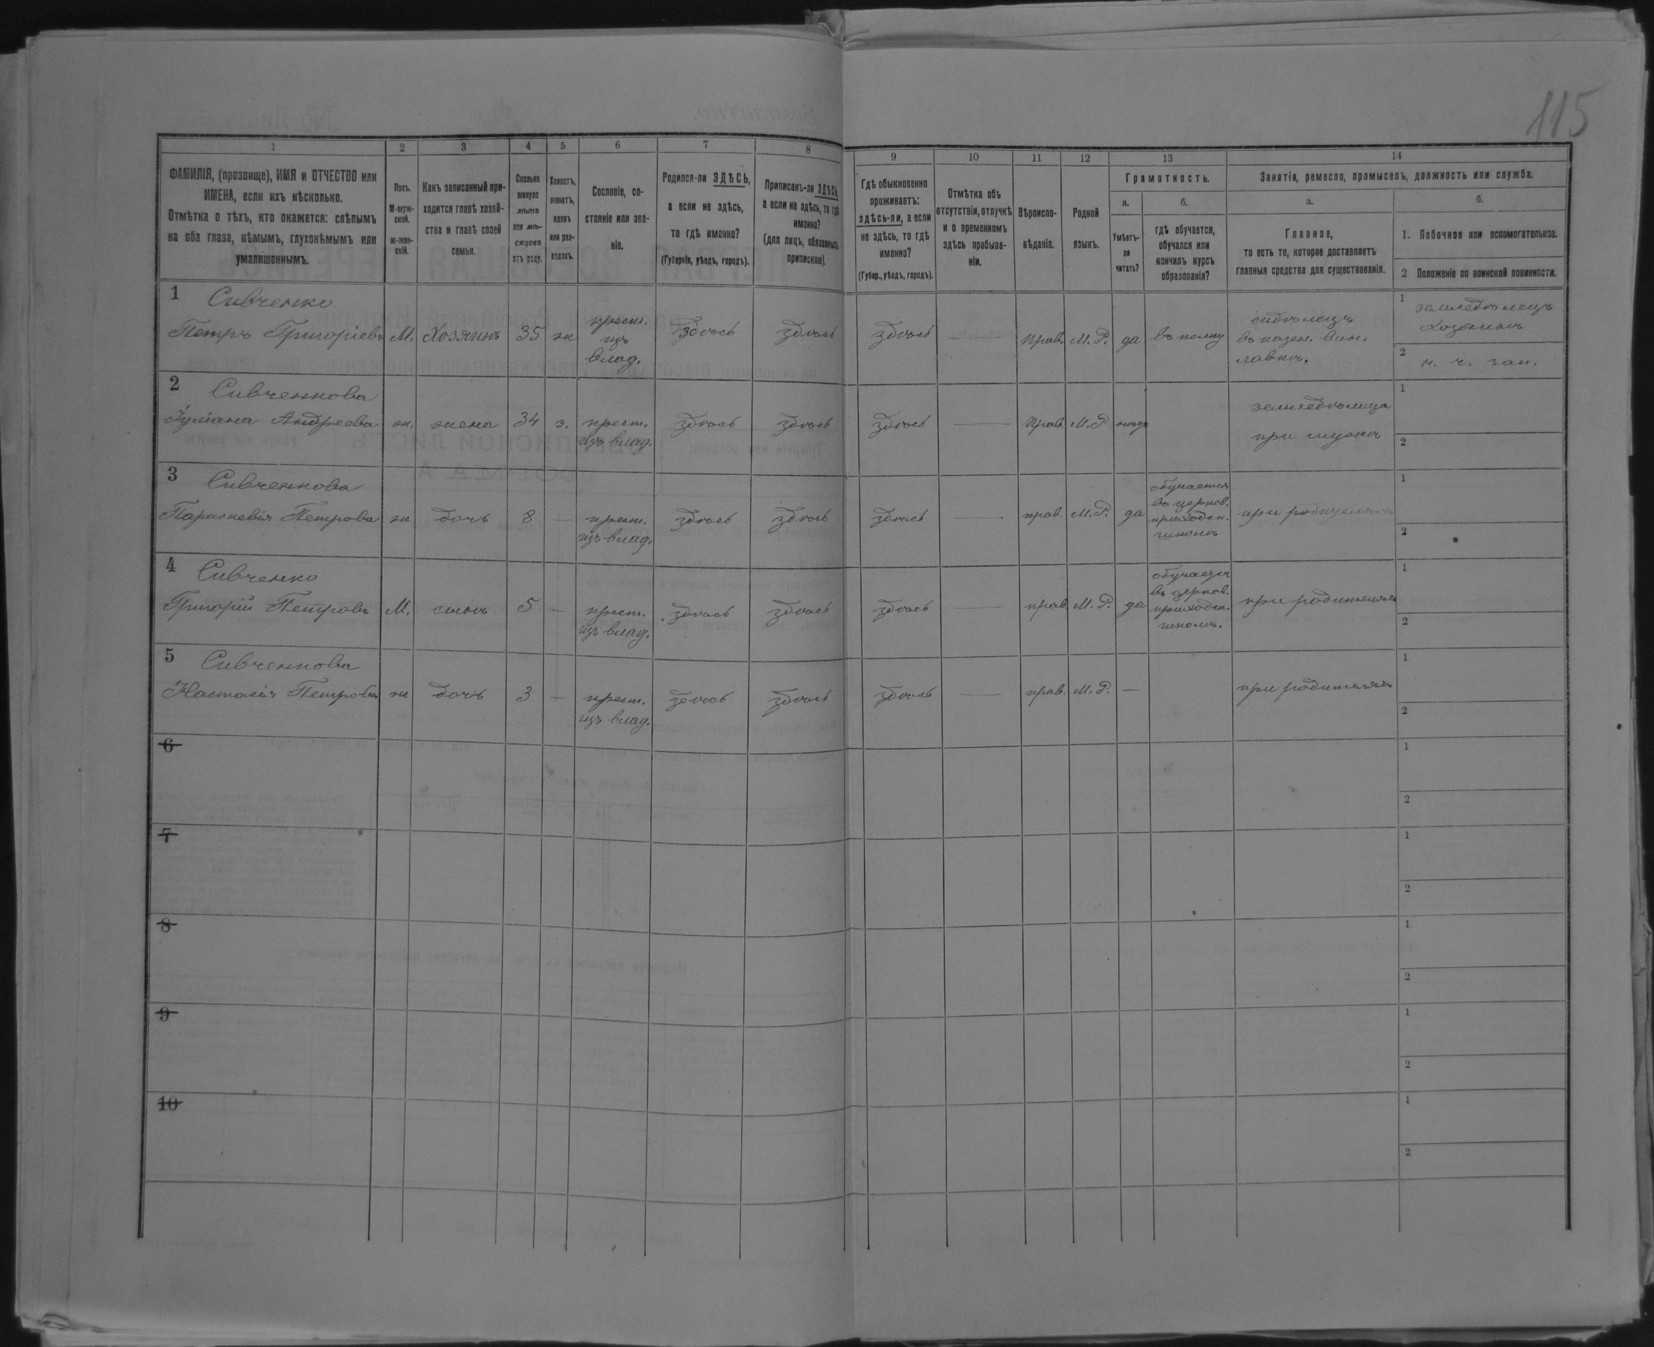 115
1
2
3
4
5
6
7
8
9
10
11
12
13
14
ФАМИЛІЯ, (прозвище), ИМЯ и ОТЧЕСТВО или
ИМЕНА, если ихъ нѣсколько.
Отмѣтка о тѣхъ, кто окажется: слѣпымъ
на оба глаза, нѣмымъ, глухонѣмымъ или
умалишоннымъ.
Полъ.
М-муж-
ской.
ж-жен-
скій.
Какъ записанный при-
ходится главѣ хозяй-
ства и главѣ своей
семьи.
Сколько
минуло
лѣтъ
или мѣ-
сяцевъ
отъ роду.
Холостъ,
женатъ,
вдовъ
или раз-
веденъ.
Сословіе, со-
стояніе или зва-
ніе.
Родился-ли ЗДѢСЬ,
а если не здѣсь,
то гдѣ именно?
(Губернія, уѣздъ, городъ).
Приписанъ-ли ЗДѢСЬ,
а если не здѣсь, то гдѣ
именно?
(для лицъ, обязанныхъ
припискою).
Гдѣ обыкновенно
проживаетъ:
здѣсь-ли, а если
не здѣсь, то гдѣ
именно?
(Губер., уѣздъ, городъ).
Отмѣтка объ
отсутствіи, отлучкѣ
и о временномъ
здѣсь пребыва-
ніи.
Вѣроиспо-
вѣданіе.
Родной
языкъ.
Грамотность.
а.
Умѣетъ-
ли
читать?
б.
гдѣ обучается,
обучался или
кончилъ курсъ
образованія?
Занятія, ремесло, промыселъ, должность или служба.
а.
Главное,
то есть то, которое доставляетъ
главныя средства для существованія.
б.
1. Побочное или вспомогательное.
2 Положеніе по воинской повинности.
1
Сивченко
Петръ Григоріевъ М. Хозяинъ 35 ж крест. изъ влад. здѣсь здѣсь здѣсь — прав. М.Р. да въ полку сидѣлецъ въ казен. вин. лавкѣ.
1 земледѣлецъ хозяинъ
2 н. ч. зап.
2
Сивченкова
Андреева ж. жена 34 з. крест. изъ влад. здѣсь здѣсь здѣсь — прав. М.Р. земледѣлица при мужѣ
1
2
3
Сивченкова
Параскевія Петрова ж дочь 8 — крест. изъ влад. здѣсь здѣсь здѣсь — прав. М.Р. да обучается въ церков. приходск. школѣ при родителяхъ
1
2
4
Сивченко
Григорій Петровъ М. сынъ 5 — крест. изъ влад. здѣсь здѣсь здѣсь — прав. М.Р. да обучается въ церков. приходск. школѣ. при родителяхъ
1
2
5
Сивченкова
Настасія Петрова ж дочь 3 — крест. изъ влад. здѣсь здѣсь здѣсь — прав. М.Р. — при родителяхъ
1
2
6
1
2
7
1
2
8
1
2
9
1
2
10
1
2